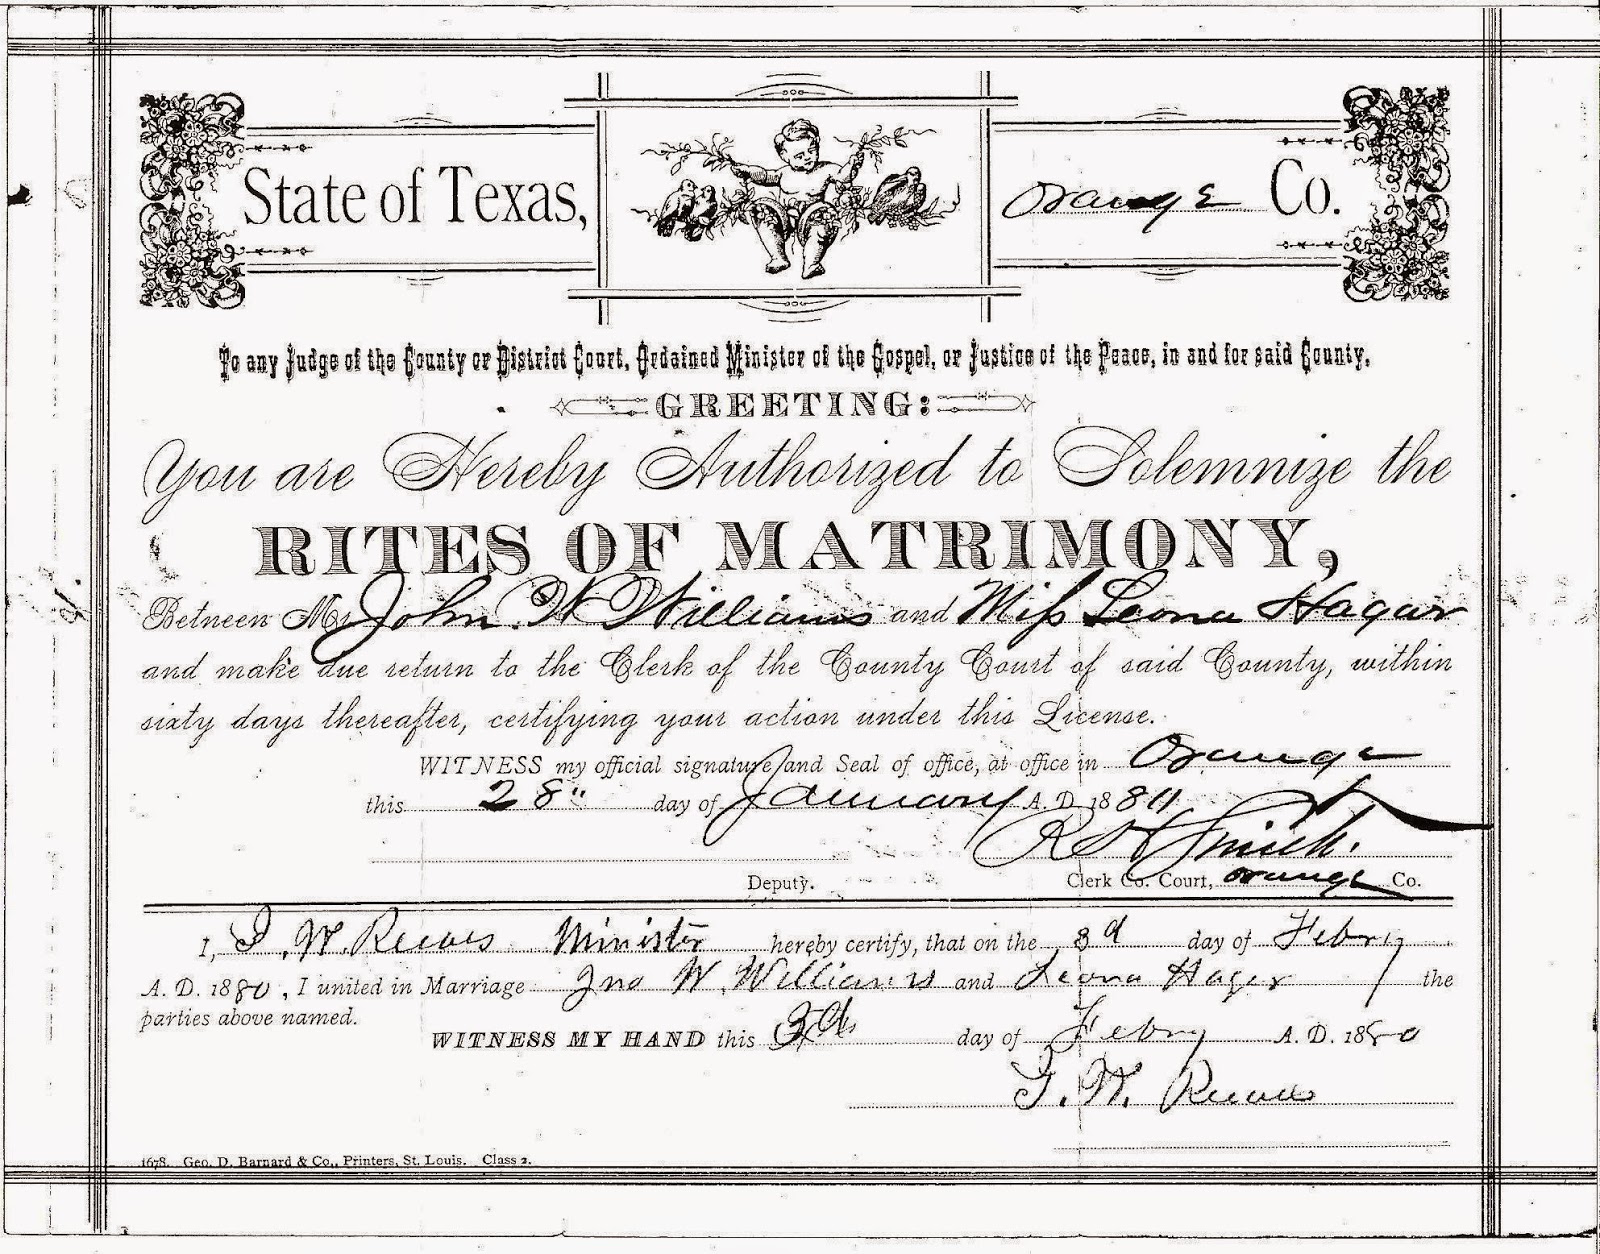 State of Texas, Orange Co.
To any Judge of the County or District Court, Ordained Minister of the Gospel, or Justice of the Peace, in and for said County,
GREETING:
You are Hereby Authorized to Solemnize the
RITES OF MATRIMONY,
Between Mr John W Williams and Miss Leona Hagar
and make due return to the Clerk of the County Court of said County, within
sixty days thereafter, certifying your action under this License.
WITNESS my official signature and Seal of office, at office in Orange
this 28" day of January A. D. 188
R H Smith.
Deputy. Clerk Co. Court, Orange Co.
I, W. Reeves Minister hereby certify, that on the 3d day of Febry
A. D. 1880, I united in Marriage Jno W. Williams and Leona Hager the
parties above named.
WITNESS MY HAND this 3d day of Febry A. D. 1880
W. Reeves
1678. Geo. D. Barnard & Co., Printers, St. Louis. Class 2.